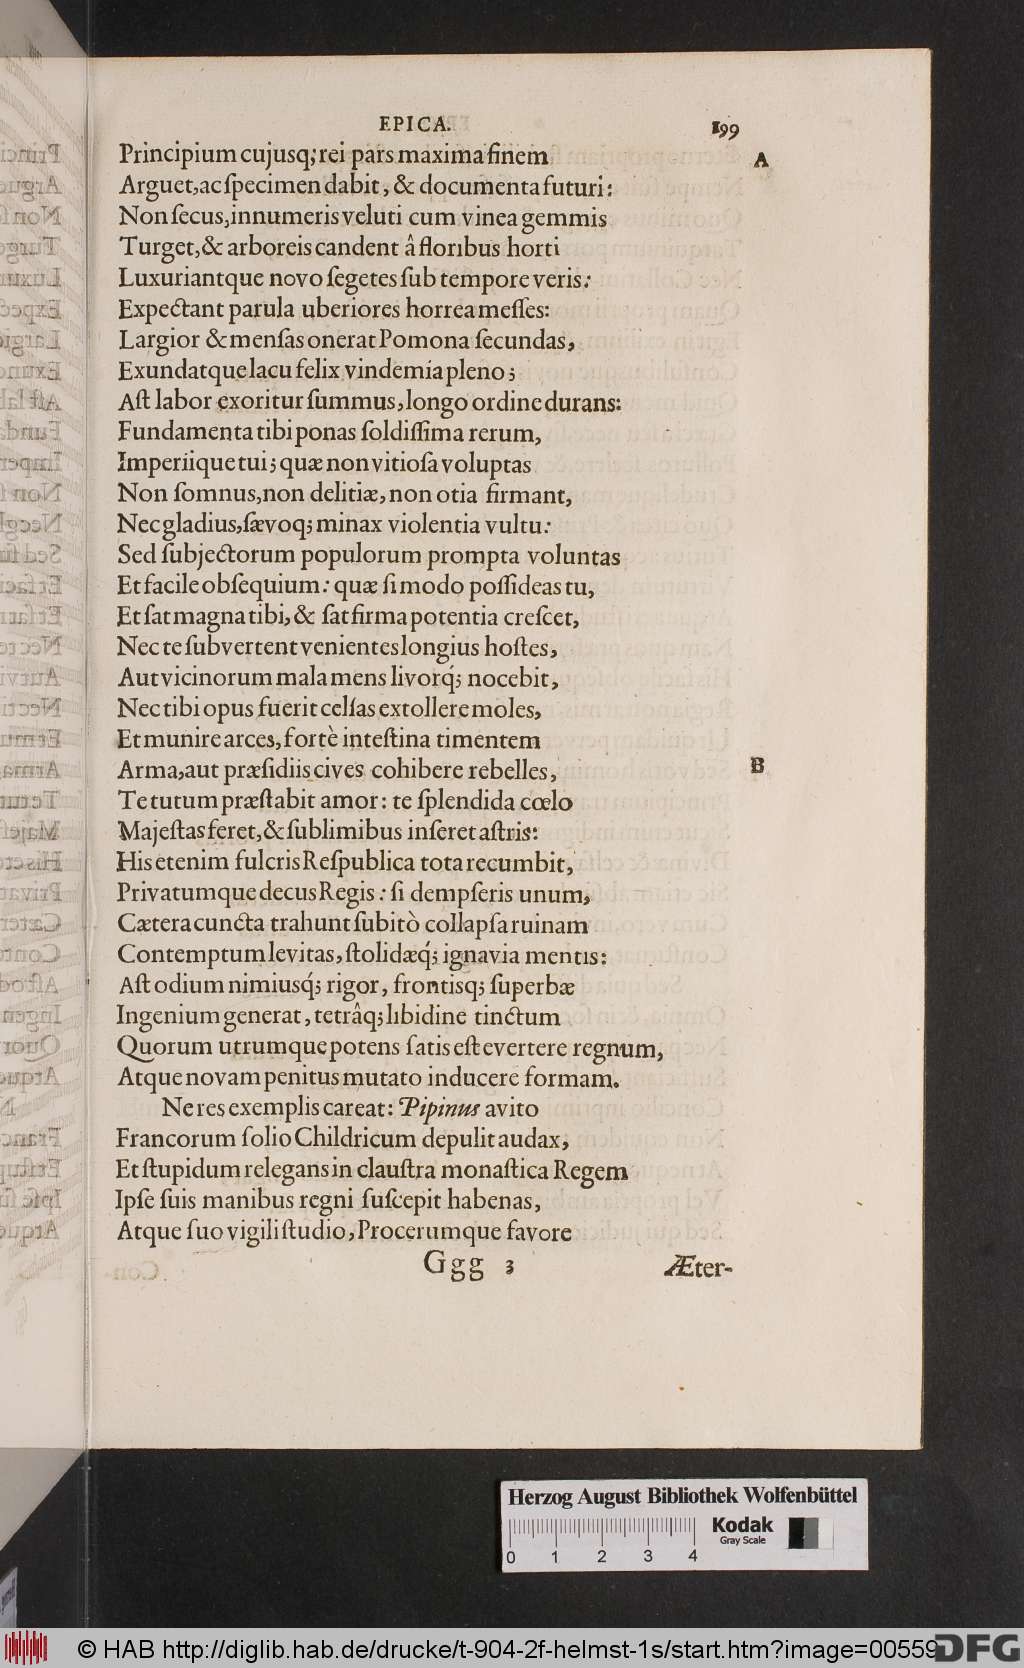 EPICA. 199
Principium cujusq; rei pars maxima finem A
Arguet, ac ſpecimen dabit, & documenta futuri:
Non ſecus, innumeris veluti cum vinea gemmis
Turget, & arboreis candent â floribus horti
Luxuriantque novo ſegetes ſub tempore veris:
Expectant parula uberiores horrea meſſes:
Largior & menſas onerat Pomona ſecundas,
Exundatque lacu felix vindemia pleno;
Aſt labor exoritur ſummus, longo ordine durans:
Fundamenta tibi ponas ſoldiſſima rerum,
Imperiique tui; quæ non vitioſa voluptas
Non ſomnus, non delitiæ, non otia firmant,
Nec gladius, ſævoq; minax violentia vultu:
Sed ſubjectorum populorum prompta voluntas
Et facile obſequium: quæ ſi modo poſſideas tu,
Et ſat magna tibi, & ſat firma potentia creſcet,
Nec te ſubvertent venientes longius hoſtes,
Aut vicinorum mala mens livorq́; nocebit,
Nec tibi opus fuerit celſas extollere moles,
Et munire arces, fortè inteſtina timentem
Arma, aut præſidiis cives cohibere rebelles, B
Te tutum præſtabit amor: te ſplendida cœlo
Majeſtas feret, & ſublimibus inſeret aſtris:
His etenim fulcris Reſpublica tota recumbit,
Privatumque decus Regis: ſi dempſeris unum,
Cætera cuncta trahunt ſubitò collapſa ruinam
Contemptum levitas, ſtolidæq́; ignavia mentis:
Aſt odium nimiusq́; rigor, frontisq; ſuperbæ
Ingenium generat, tetrâq; libidine tinctum
Quorum utrumque potens ſatis eſt evertere regnum,
Atque novam penitus mutato inducere formam.
Ne res exemplis careat: Pipinus avito
Francorum ſolio Childricum depulit audax,
Et ſtupidum relegans in clauſtra monaſtica Regem
Ipſe ſuis manibus regni ſuſcepit habenas,
Atque ſuo vigili ſtudio, Procerumque favore
Ggg 3 Æter-
Herzog August Bibliothek Wolfenbüttel
Kodak
Gray Scale
0 1 2 3 4
© HAB http://diglib.hab.de/drucke/t-904-2f-helmst-1s/start.htm?image=00559
DFG